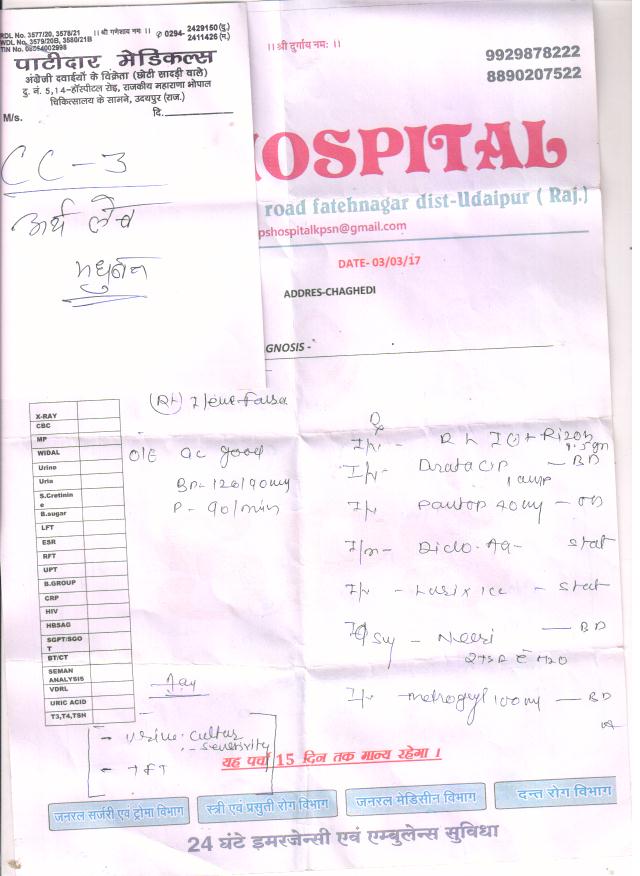 RDL No. 3577/20, 3578/21
WDL No. 3579/20B, 3580/21B
TIN No. 08064002998
।। श्री गणेशाय नमः ।।
0294- 2429150 (दु.)
2411426 (नि.)
पाटीदार मेडिकल्स
अंग्रेजी दवाईयों के विक्रेता (छोटी सादड़ी वाले)
दु. नं. 5,14-हॉस्पीटल रोड़, राजकीय महाराणा भोपाल
चिकित्सालय के सामने, उदयपुर (राज.)
M/s.
दि.
CC-3
।। श्री दुर्गाय नमः ।।
9929878222
8890207522
HOSPITAL
road fatehnagar dist-Udaipur ( Raj.)
pshospitalkpsn@gmail.com
DATE- 03/03/17
ADDRES-CHAGHEDI
GNOSIS -
X-RAY
CBC
MP
WIDAL
Urine
Uria
S.Cretinine
B.sugar
LFT
ESR
RFT
UPT
B.GROUP
CRP
HIV
HBSAG
SGPT/SGOT
BT/CT
SEMAN ANALYSIS
VDRL
URIC ACID
T3,T4,TSH
O/E GC good
BP- 120/90
P- 90/min
- BD
1 amp
Pantop 40mg - OD
Diclo. AQ- stat
Lasix 1cc - stat
Neeri - BD
2 TSP H2O
Metrogyl 100 - BD
- Urine Cultur
- Sensitivity
यह पर्चा 15 दिन तक मान्य रहेगा ।
जनरल सर्जरी एवं ट्रोमा विभाग
स्त्री एवं प्रसुती रोग विभाग
जनरल मेडिसीन विभाग
दन्त रोग विभाग
24 घंटे इमरजेन्सी एवं एम्बुलेन्स सुविधा